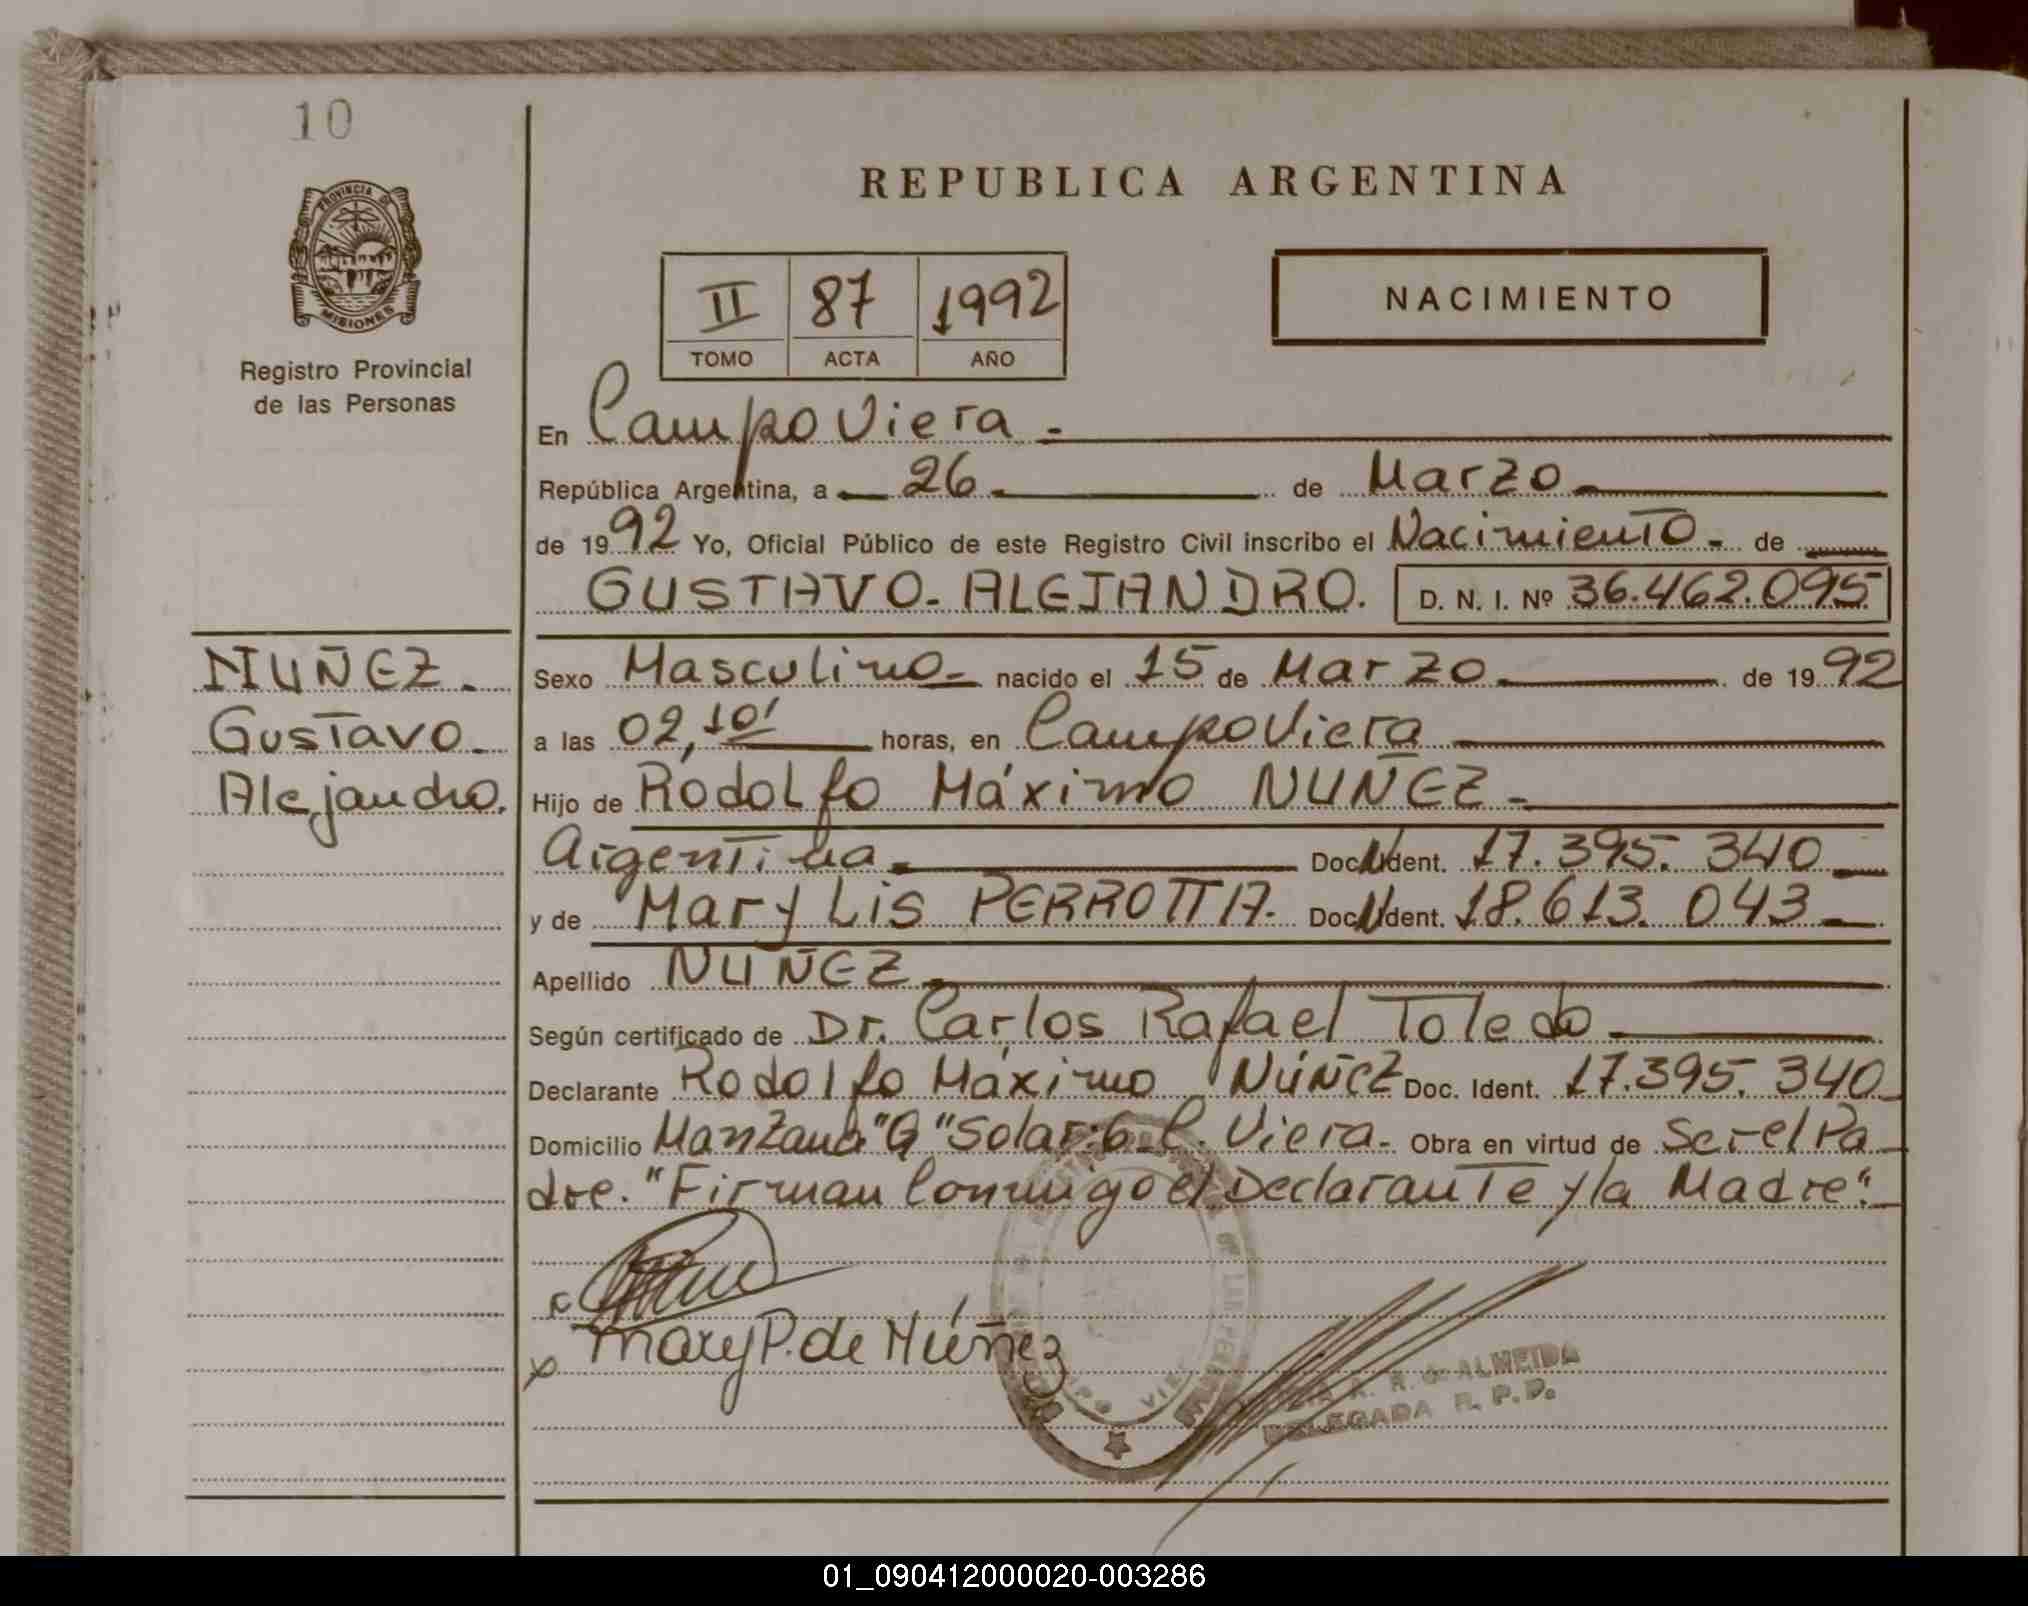 10
REPUBLICA ARGENTINA
PROVINCIA DE
MISIONES
Registro Provincial
de las Personas
II 87 1992
TOMO ACTA AÑO
NACIMIENTO
En Campo Viera -
República Argentina, a 26 de Marzo
de 1992 Yo, Oficial Público de este Registro Civil inscribo el Nacimiento - de
GUSTAVO - ALEJANDRO. D. N. I. Nº 36.462.095
NUÑEZ.
Gustavo
Alejandro.
Sexo Masculino - nacido el 15 de Marzo de 1992
a las 02,10' horas, en Campo Viera
Hijo de Rodolfo Máximo NUÑEZ -
Argentina Doc. Ident. 17.395.340
y de Mary Lis PERROTTA. Doc. Ident. 18.613.043
Apellido NUÑEZ
Según certificado de Dr. Carlos Rafael Toledo
Declarante Rodolfo Máximo Núñez Doc. Ident. 17.395.340
Domicilio Manzana "G" Solar: 6 C. Viera - Obra en virtud de Ser el Pa-
dre. "Firman Conmigo el Declarante y la Madre".
x
x Mary P. de Núñez
R. G. ALMEIDA
DELEGADA R. P. D.
01_090412000020-003286